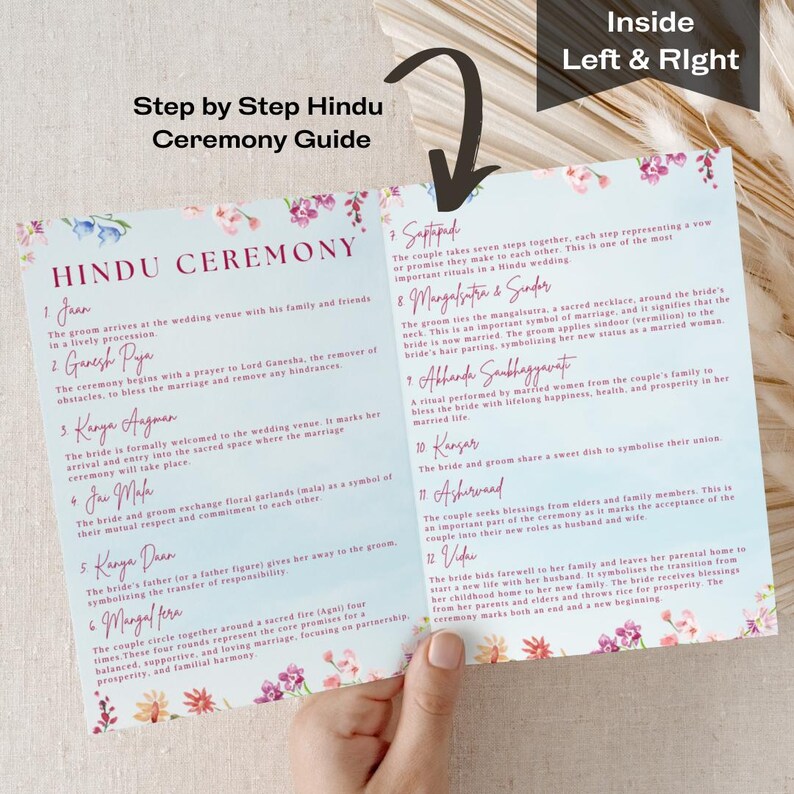 Inside
Left & RIght
Step by Step Hindu
Ceremony Guide
HINDU CEREMONY
1. Jaan
The groom arrives at the wedding venue with his family and friends
in a lively procession.
2. Ganesh Puja
The ceremony begins with a prayer to Lord Ganesha, the remover of
obstacles, to bless the marriage and remove any hindrances.
3. Kanya Aagman
The bride is formally welcomed to the wedding venue. It marks her
arrival and entry into the sacred space where the marriage
ceremony will take place.
4. Jai Mala
The bride and groom exchange floral garlands (mala) as a symbol of
their mutual respect and commitment to each other.
5. Kanya Daan
The bride's father (or a father figure) gives her away to the groom,
symbolizing the transfer of responsibility.
6. Mangal fera
The couple circle together around a sacred fire (Agni) four
times.These four rounds represent the core promises for a
balanced, supportive, and loving marriage, focusing on partnership,
prosperity, and familial harmony.
7. Saptapadi
The couple takes seven steps together, each step representing a vow
or promise they make to each other. This is one of the most
important rituals in a Hindu wedding.
8. Mangalsutra & Sindor
The groom ties the mangalsutra, a sacred necklace, around the bride's
neck. This is an important symbol of marriage, and it signifies that the
bride is now married. The groom applies sindoor (vermilion) to the
bride's hair parting, symbolizing her new status as a married woman.
9. Akhanda Saubhagyavati
A ritual performed by married women from the couple's family to
bless the bride with lifelong happiness, health, and prosperity in her
married life.
10. Kansar
The bride and groom share a sweet dish to symbolise their union.
11. Ashirvaad
The couple seeks blessings from elders and family members. This is
an important part of the ceremony as it marks the acceptance of the
couple into their new roles as husband and wife.
12. Vidai
The bride bids farewell to her family and leaves her parental home to
start a new life with her husband. It symbolises the transition from
her childhood home to her new family. The bride receives blessings
from her parents and elders and throws rice for prosperity. The
ceremony marks both an end and a new beginning.